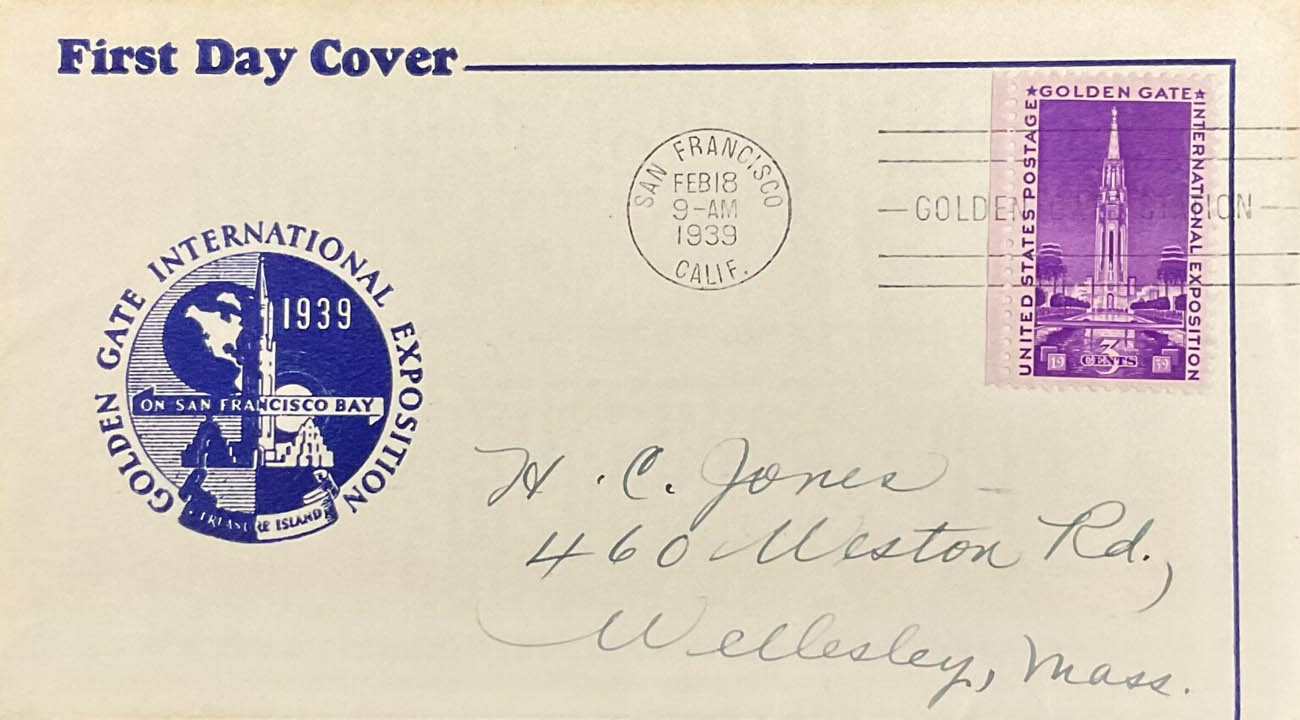 First Day Cover
★GOLDEN GATE★
UNITED STATES POSTAGE
INTERNATIONAL EXPOSITION
3
CENTS
19 39
SAN FRANCISCO
FEB 18
9-AM
1939
CALIF.
GOLDEN GATE STATION
GOLDEN GATE INTERNATIONAL EXPOSITION
1939
ON SAN FRANCISCO BAY
TREASURE ISLAND
H. C. Jones
460 Weston Rd.,
Wellesley, Mass.